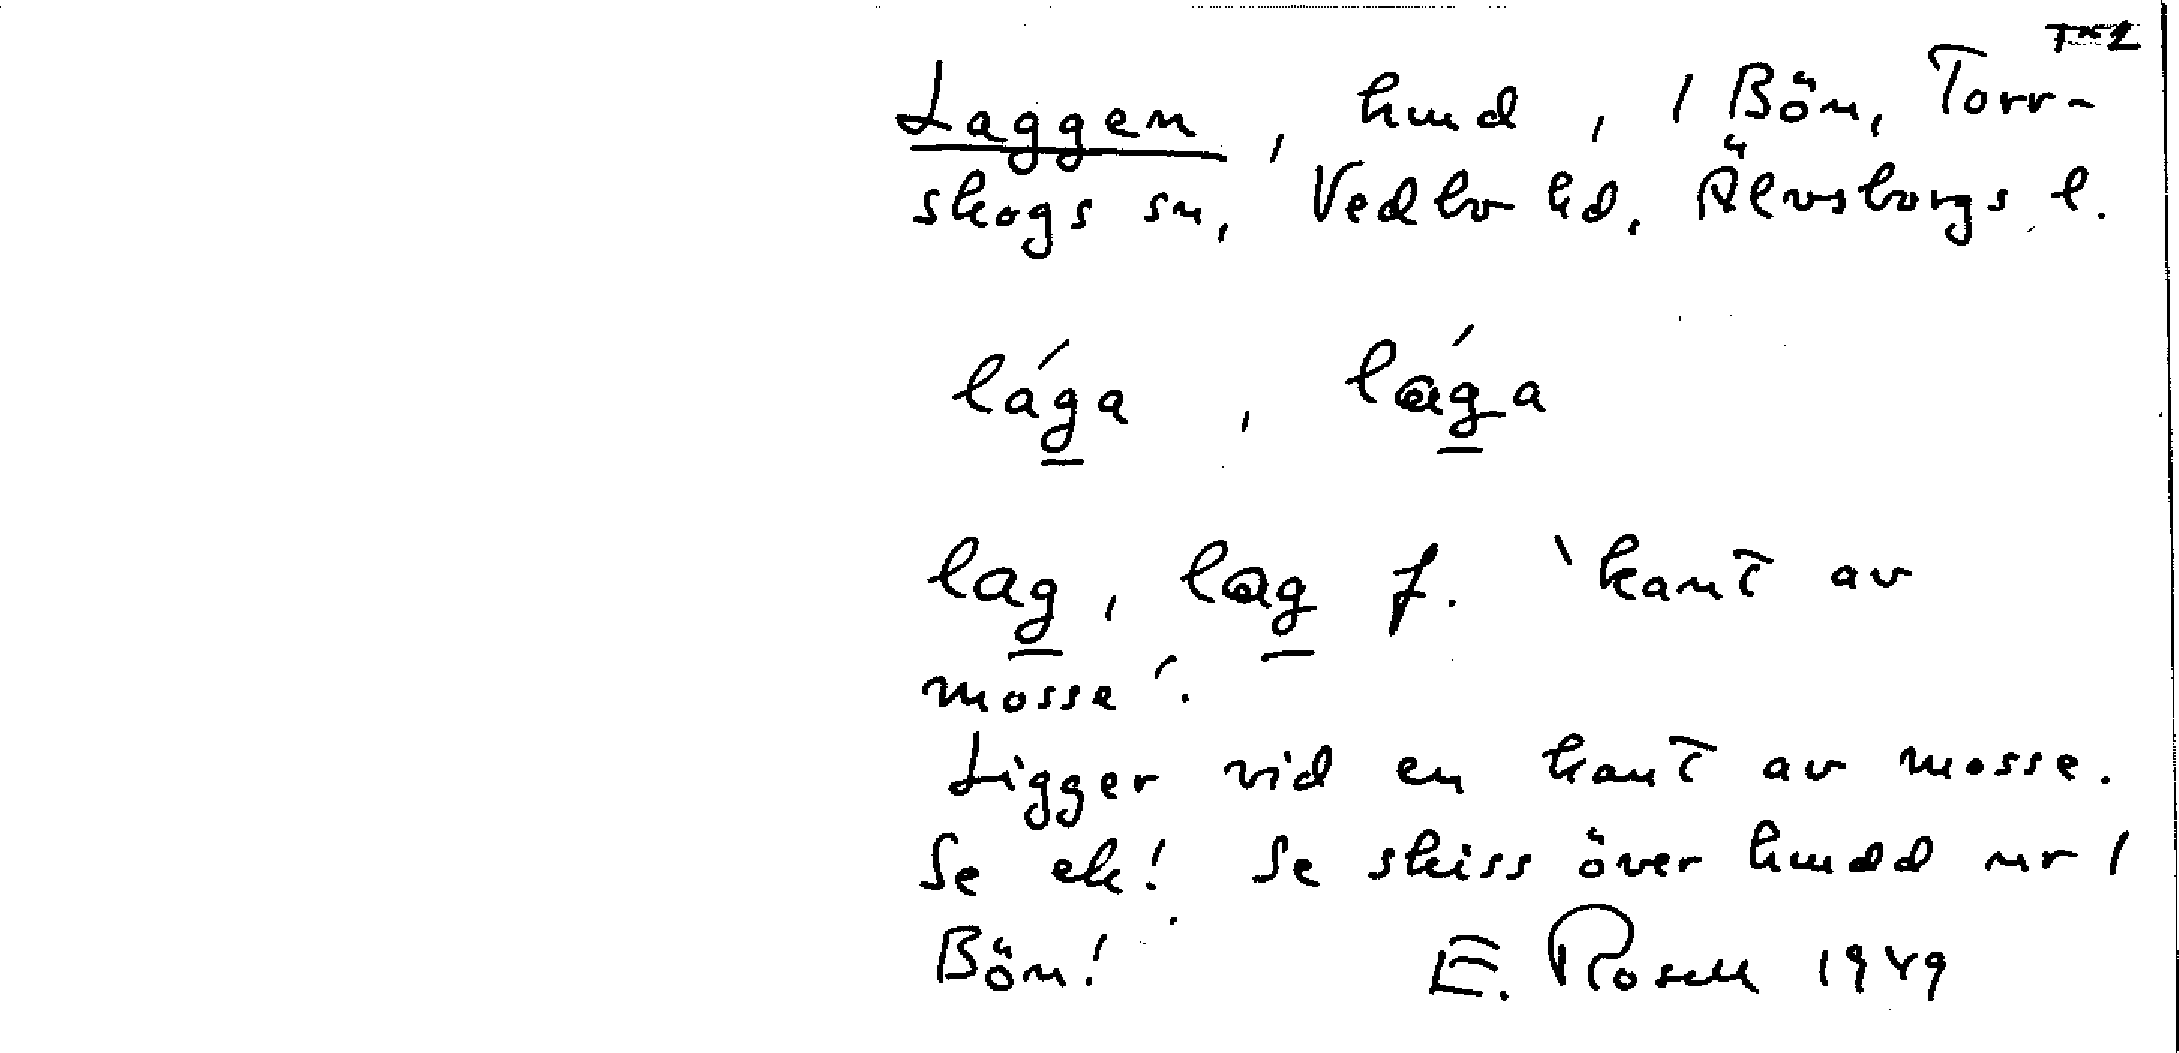 Laggen, hmd, 1 Bön, Torr-
skogs sn, Vedbo hd, Älvsborgs l.
lága, lága
lag, lag f. 'kant av
mosse'.
Ligger vid en kant av mosse.
Se ek! Se skiss över hmdd nr 1
Bön! E. Rosell 1949